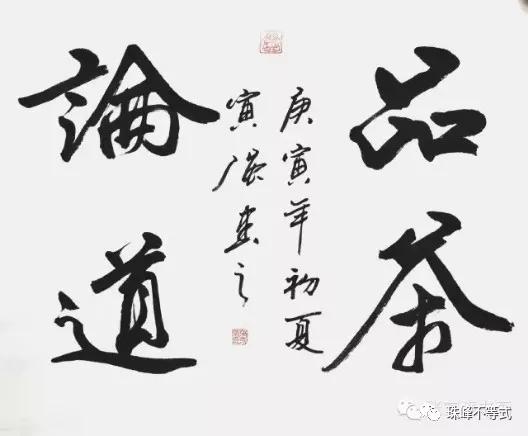 品茶
庚寅年初夏
寅書之
論道
珠峰不等式